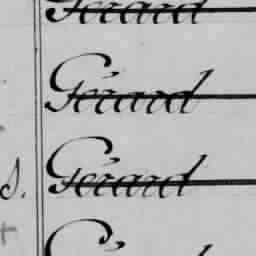 Gérard
Gérard
s. Gérard